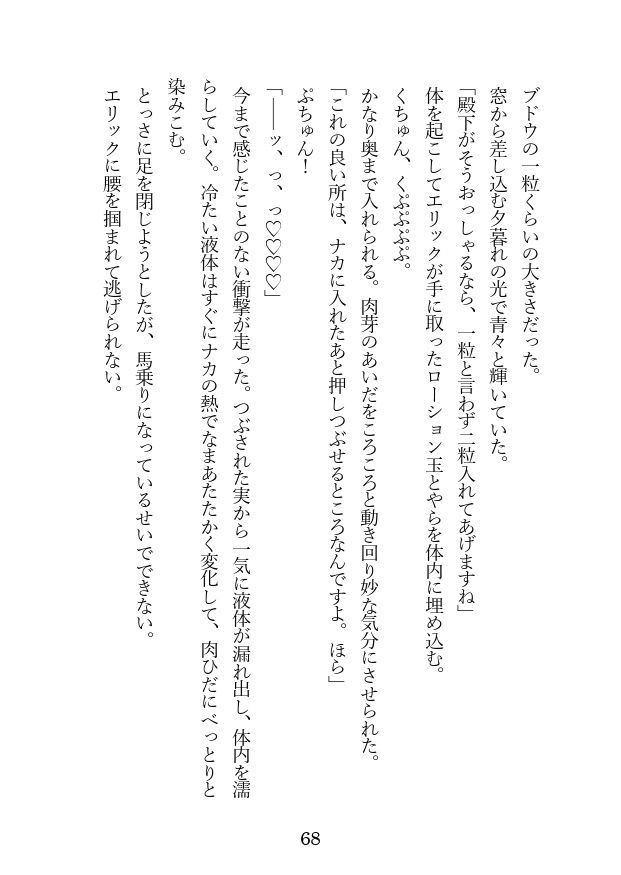 ブドウの一粒くらいの大きさだった。
窓から差し込む夕暮れの光で青々と輝いていた。
「殿下がそうおっしゃるなら、一粒と言わず二粒入れてあげますね」
体を起こしてエリックが手に取ったローション玉とやらを体内に埋め込む。
くちゅん、くぷぷぷぷ。
かなり奥まで入れられる。肉芽のあいだをころころと動き回り妙な気分にさせられた。
「これの良い所は、ナカに入れたあと押しつぶせるところなんですよ。ほら」
ぷちゅん！
「――ッ、っ、っ♡♡♡♡」
今まで感じたことのない衝撃が走った。つぶされた実から一気に液体が漏れ出し、体内を濡
らしていく。冷たい液体はすぐにナカの熱でなまあたたかく変化して、肉ひだにべっとりと
染みこむ。
とっさに足を閉じようとしたが、馬乗りになっているせいでできない。
エリックに腰を掴まれて逃げられない。
68